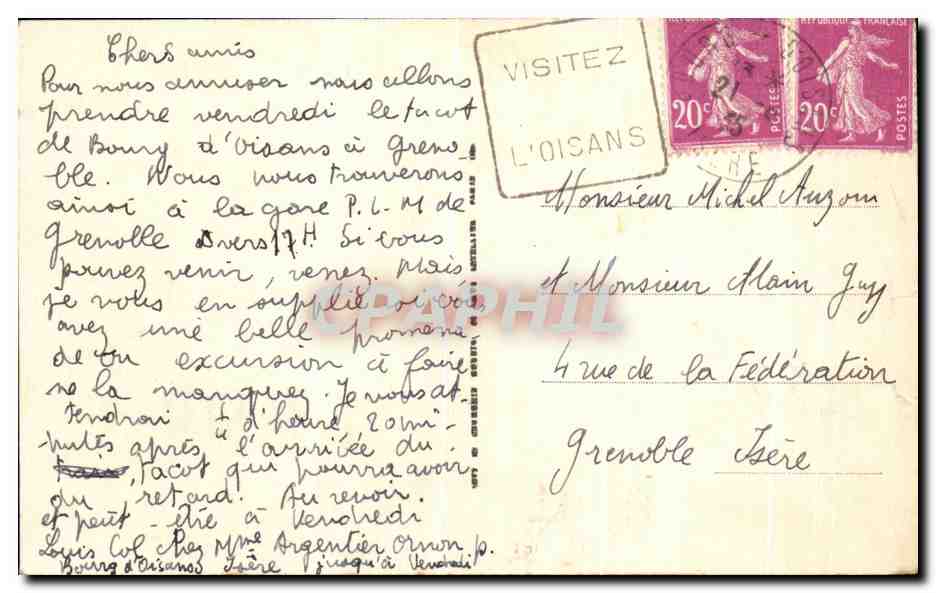 Chers amis
Pour nous amuser nous allons
prendre vendredi le tacot
de Bourg d'Oisans à Greno-
ble. Nous nous trouverons
ainsi à la gare P.L.M de
Grenoble vers 17H. Si vous
pouvez venir, venez. Mais
je vous en supplie si vous
avez une belle promena-
de ou excursion à faire
ne la manquez. Je vous at-
tendrai d'heure 20 mi-
nutes après l'arrivée du
tacot qui pourra avoir
du retard. Au revoir.
et peut-être à Vendredi
Louis Col chez Mme Argentier Ornon p.
Bourg d'Oisans Isère jusqu'à Vendredi
VISITEZ
L'OISANS
RÉPUBLIQUE FRANÇAISE
20c
POSTES
RÉPUBLIQUE FRANÇAISE
20c
POSTES
Monsieur Michel Auzoin
et Monsieur Alain Guy
4 rue de la Fédération
Grenoble Isère
CPAPHIL